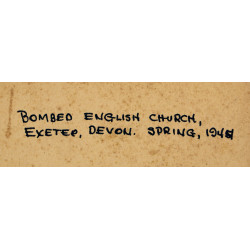 BOMBED ENGLISH CHURCH,
EXETER, DEVON. SPRING,